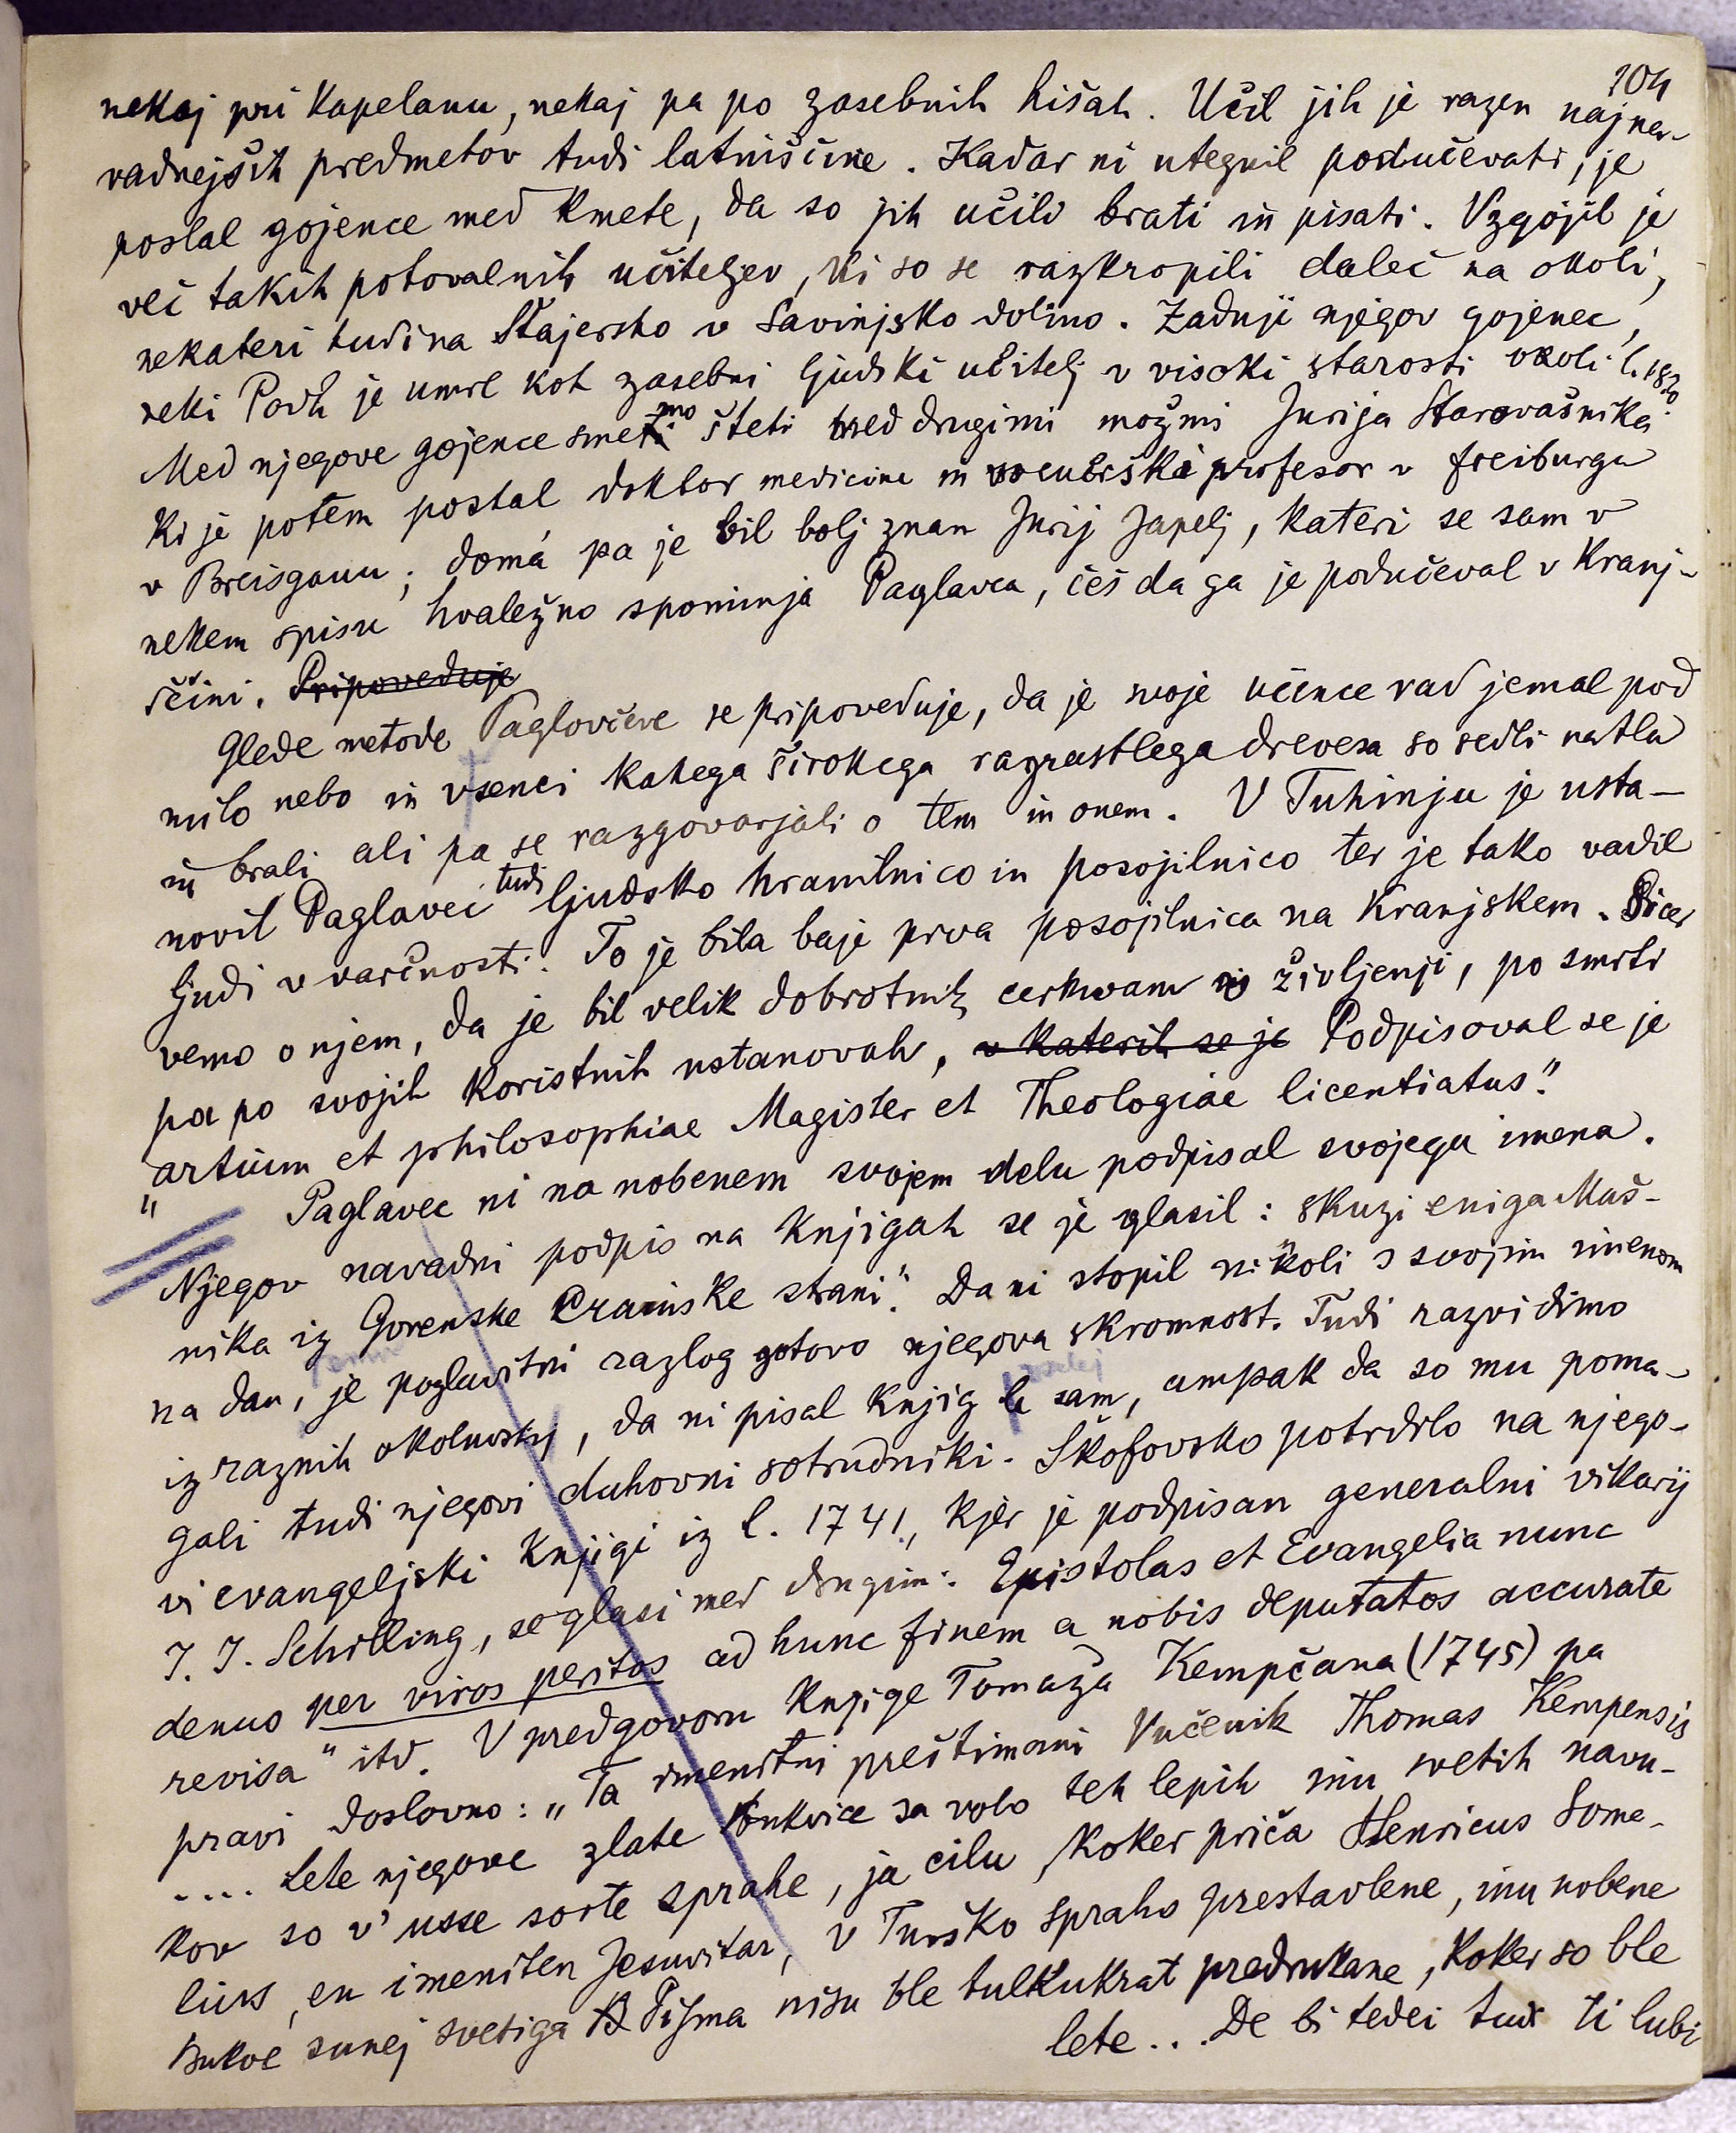 104
nekaj pri kapelanu, nekaj pa po zasebnih hišah. Učil jih je razen najna-
vadnejših predmetov tudi latinščine. Kadar ni utegnil podučevati, je
poslal gojence med kmete, da so jih učili brati in pisati. Vzgojil je
več takih potovalnih učiteljev, ki so se razkropili daleč na okoli,
nekateri tudi na Štajersko v Savinjsko dolino. Zadnji njegov gojenec,
neki Podh je umrl kot zasebni ljudski učitelj v visoki starosti okoli l. 1820.
Med njegove gojence smemo šteti med drugimi možmi Jurija Starovašnika
ki je potem postal doktor medicine in vseučiliški profesor v Freiburgu
v Breisgauu; domá pa je bil bolj znan Jurij Japelj, kateri se sam v
nekem spisu hvaležno spominja Paglavca, češ da ga je podučeval v kranj-
ščini. Pripoveduje
Glede metode Paglovčeve se pripoveduje, da je svoje učence rad jemal pod
milo nebo in v senci kakega širokega razrastlega drevesa so sedli na tla
in brali ali pa se razgovarjali o tem in onem. V Tuhinju je usta-
novil Paglavec tudi ljudsko hranilnico in posojilnico ter je tako vadil
ljudi v varčnosti. To je bila baje prva posojilnica na Kranjskem. Sicer
vemo o njem, da je bil velik dobrotnik cerkvam v življenji, po smrti
pa po svojih koristnih ustanovah, v katerih se je Podpisoval se je
"artium et philosophiae Magister et Theologiae licentiatus".
Paglavec ni na nobenem svojem delu podpisal svojega imena.
Njegov navadni podpis na knjigah se je glasil: skuzi eniga Maš-
nika iz Gorenske Crainske strani". Da ni stopil nikoli s svojim imenom
na dan, je poglavitni razlog gotovo njegova skromnost. Tudi razvidimo
iz raznih okolnostij, da ni pisal knjig le sam, ampak da so mu poma-
gali tudi njegovi duhovni sotrudniki. Škofovsko potrdilo na njego-
vi evangeljski knjigi iz l. 1741., kjer je podpisan generalni vikarij
J. J. Schilling, se glasi med drugim: Epistolas et Evangelia nunc
denuo per viros peritos ad hunc finem a nobis deputatos accurate
revisa" itd. V predgovoru knjige Tomaža Kempčana (1745) pa
pravi doslovno: „Ta imenitni preštimani Vučenik Thomas Kempensis
.... Lete njegove zlate Bukvice sa volo teh lepih inu svetih navu-
kov so v' usse sorte sprahe, ja cilu, koker priča Henricus Some-
lius, en imeniten Jesuvitar, v Turško spraho prestavlene, inu nobene
Bukve sunej svetiga Pisma nisu ble tulkukrat predrukane, koker so ble
lete... De bi tedei tudi ti lubi